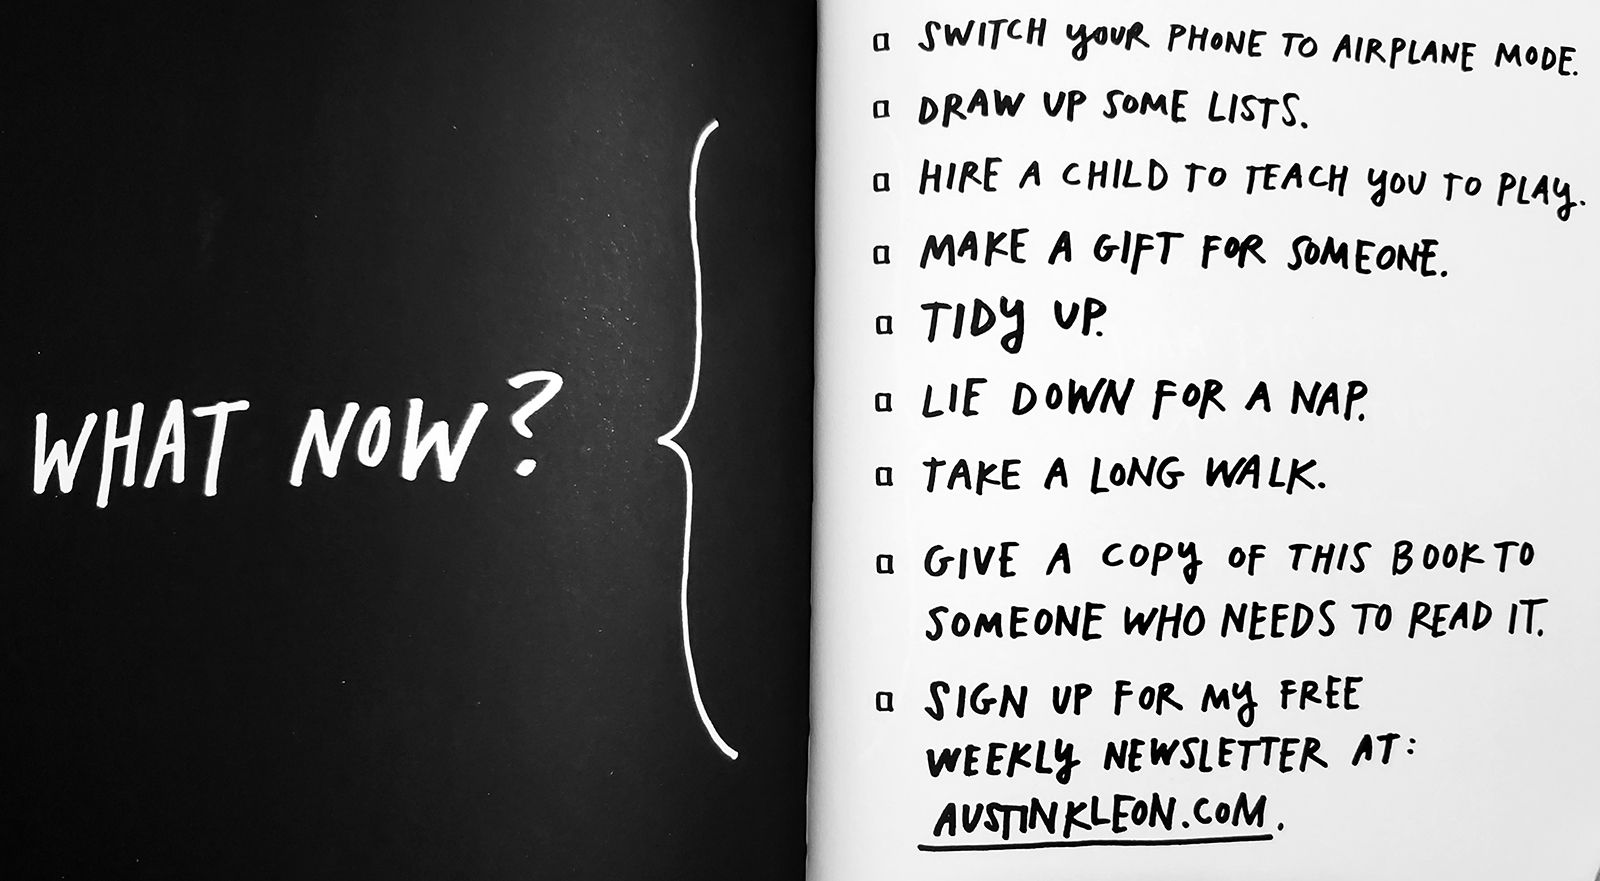 WHAT NOW?
SWITCH YOUR PHONE TO AIRPLANE MODE.
DRAW UP SOME LISTS.
HIRE A CHILD TO TEACH YOU TO PLAY.
MAKE A GIFT FOR SOMEONE.
TIDY UP.
LIE DOWN FOR A NAP.
TAKE A LONG WALK.
GIVE A COPY OF THIS BOOK TO
SOMEONE WHO NEEDS TO READ IT.
SIGN UP FOR MY FREE
WEEKLY NEWSLETTER AT:
AUSTINKLEON.COM.